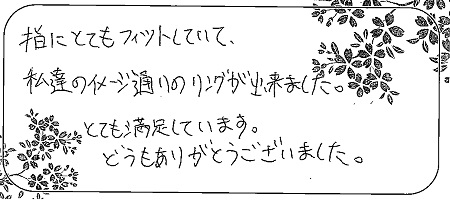 指にとてもフィットしていて、
私達のイメージ通りのリングが出来ました。
とても満足しています。
どうもありがとうございました。